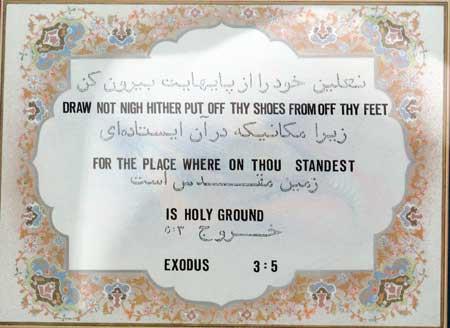 نعلین خود را از پایهایت بیرون کن
DRAW NOT NIGH HITHER PUT OFF THY SHOES FROM OFF THY FEET
زیرا مکانیکه در آن ایستاده‌ای
FOR THE PLACE WHERE ON THOU STANDEST
زمین مقدس است
IS HOLY GROUND
خروج ۳:۵
EXODUS 3:5